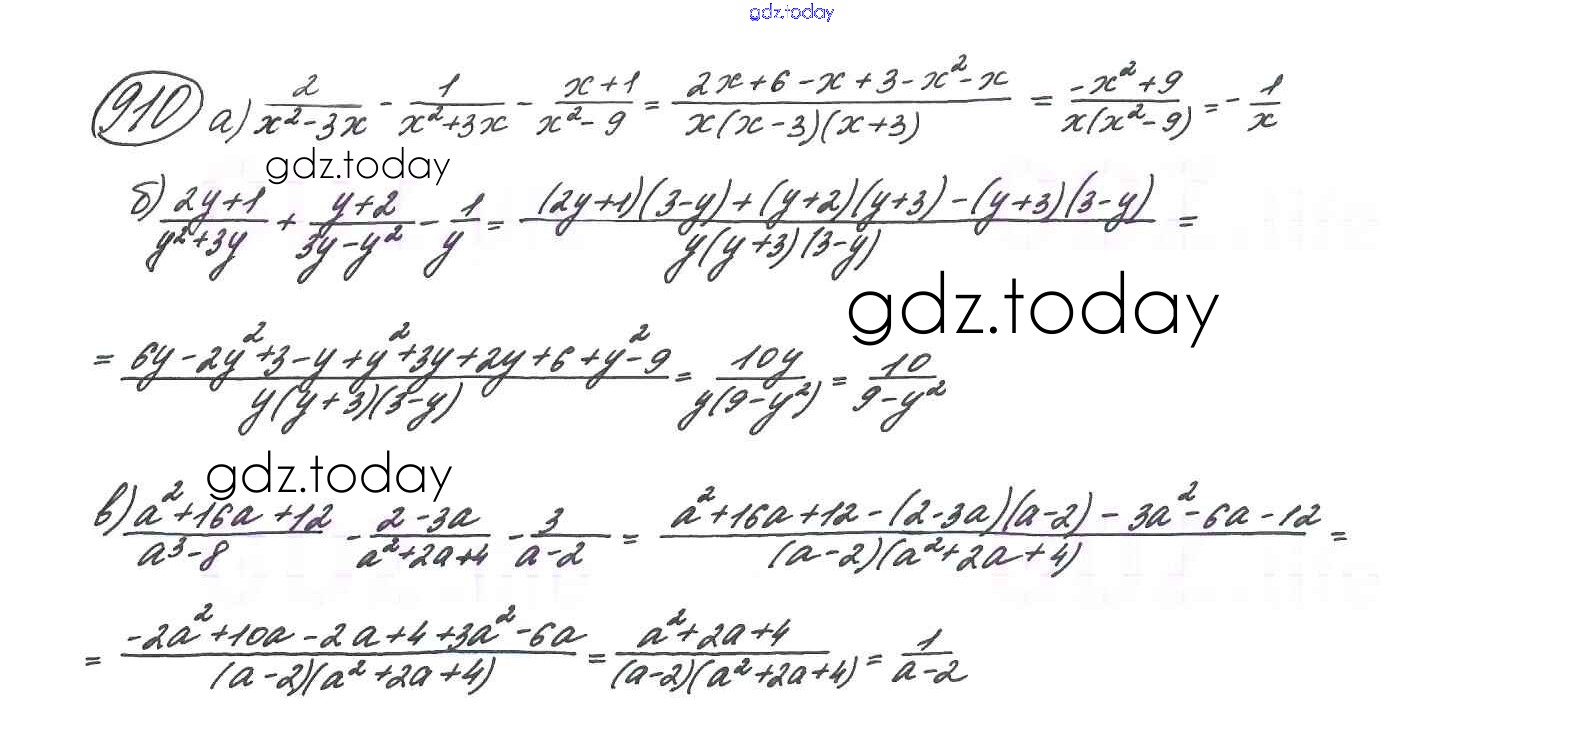 gdz.today
910 а) 2/(x²-3x) - 1/(x²+3x) - (x+1)/(x²-9) = (2x+6-x+3-x²-x)/(x(x-3)(x+3)) = (-x²+9)/(x(x²-9)) = -1/x
gdz.today
б) (2y+1)/(y²+3y) + (y+2)/(3y-y²) - 1/y = ((2y+1)(3-y)+(y+2)(y+3)-(y+3)(3-y))/(y(y+3)(3-y)) =
gdz.today
= (6y-2y²+3-y+y²+3y+2y+6+y²-9)/(y(y+3)(3-y)) = 10y/(y(9-y²)) = 10/(9-y²)
gdz.today
в) (a²+16a+12)/(a³-8) - (2-3a)/(a²+2a+4) - 3/(a-2) = (a²+16a+12-(2-3a)(a-2)-3a²-6a-12)/((a-2)(a²+2a+4)) =
= (-2a²+10a-2a+4+3a²-6a)/((a-2)(a²+2a+4)) = (a²+2a+4)/((a-2)(a²+2a+4)) = 1/(a-2)